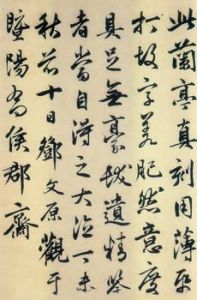 此蘭亭真刻用薄紙
打故字差肥然意度
具足無豪髮遺精鑒
者當自得之大德丁未
秋前十日鄧文原觀于
睢陽喬侯郡齋